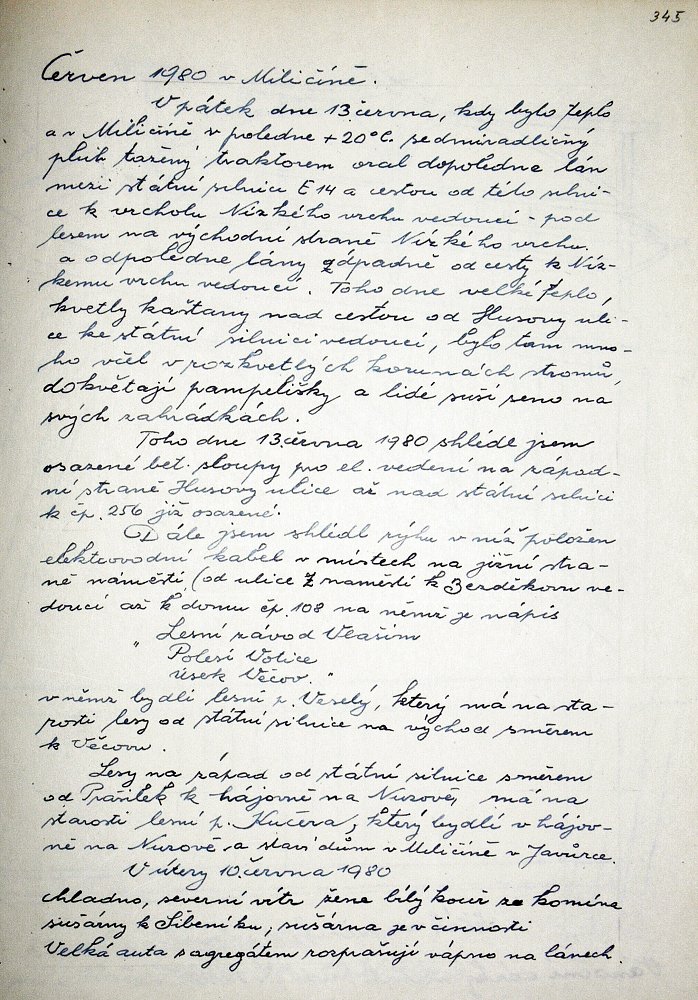 345
Červen 1980 v Miličíně.
V pátek dne 13 června, kdy bylo teplo
a v Miličíně v poledne + 20°C. sedmiradličný
pluh tažený traktorem oral dopoledne lán
mezi státní silnicí E 14 a cestou od této silni-
ce k vrcholu Nízkého vrchu vedoucí - pod
lesem na východní straně Nízkého vrchu.
a odpoledne lány západně od cesty k Níz-
kemu vrchu vedoucí. Toho dne velké teplo,
kvetly kaštany nad cestou od Husovy uli-
ce ke státní silnici vedoucí, bylo tam mno-
ho včel v rozkvetlých korunách stromů,
dokvětají pampelišky a lidé suší seno na
svých zahrádkách.
Toho dne 13.června 1980 shlédl jsem
osazené bet. sloupy pro el. vedení na západ-
ní straně Husovy ulice až nad státní silnici
k čp. 256 již osazené.
Dále jsem shlédl rýhu v níž položen
elektrovodní kabel v místech na jižní stra-
ně náměstí, (od ulice z náměstí k Bezděkovu ve-
doucí až k domu čp. 108 na němž je nápis
Lesní závod Vlašim
" Polesí Votice
úsek Věčov. "
v němž bydlí lesní p. Veselý, který má na sta-
rosti lesy od státní silnice na východ směrem
k Věčovu.
Lesy na západ od státní silnice směrem
od Prašilek k hájovně na Nuzově, má na
starosti lesní p. Kučera, který bydlí v hájov-
ně na Nuzově a staví dům v Miličíně v Javůrce.
V úterý 10.června 1980
chladno, severní vítr žene bílý kouř ze komína
sušárny k Šibeníku, sušárna je v činnosti
Velká auta s agregátem rozprašují vápno na lánech.